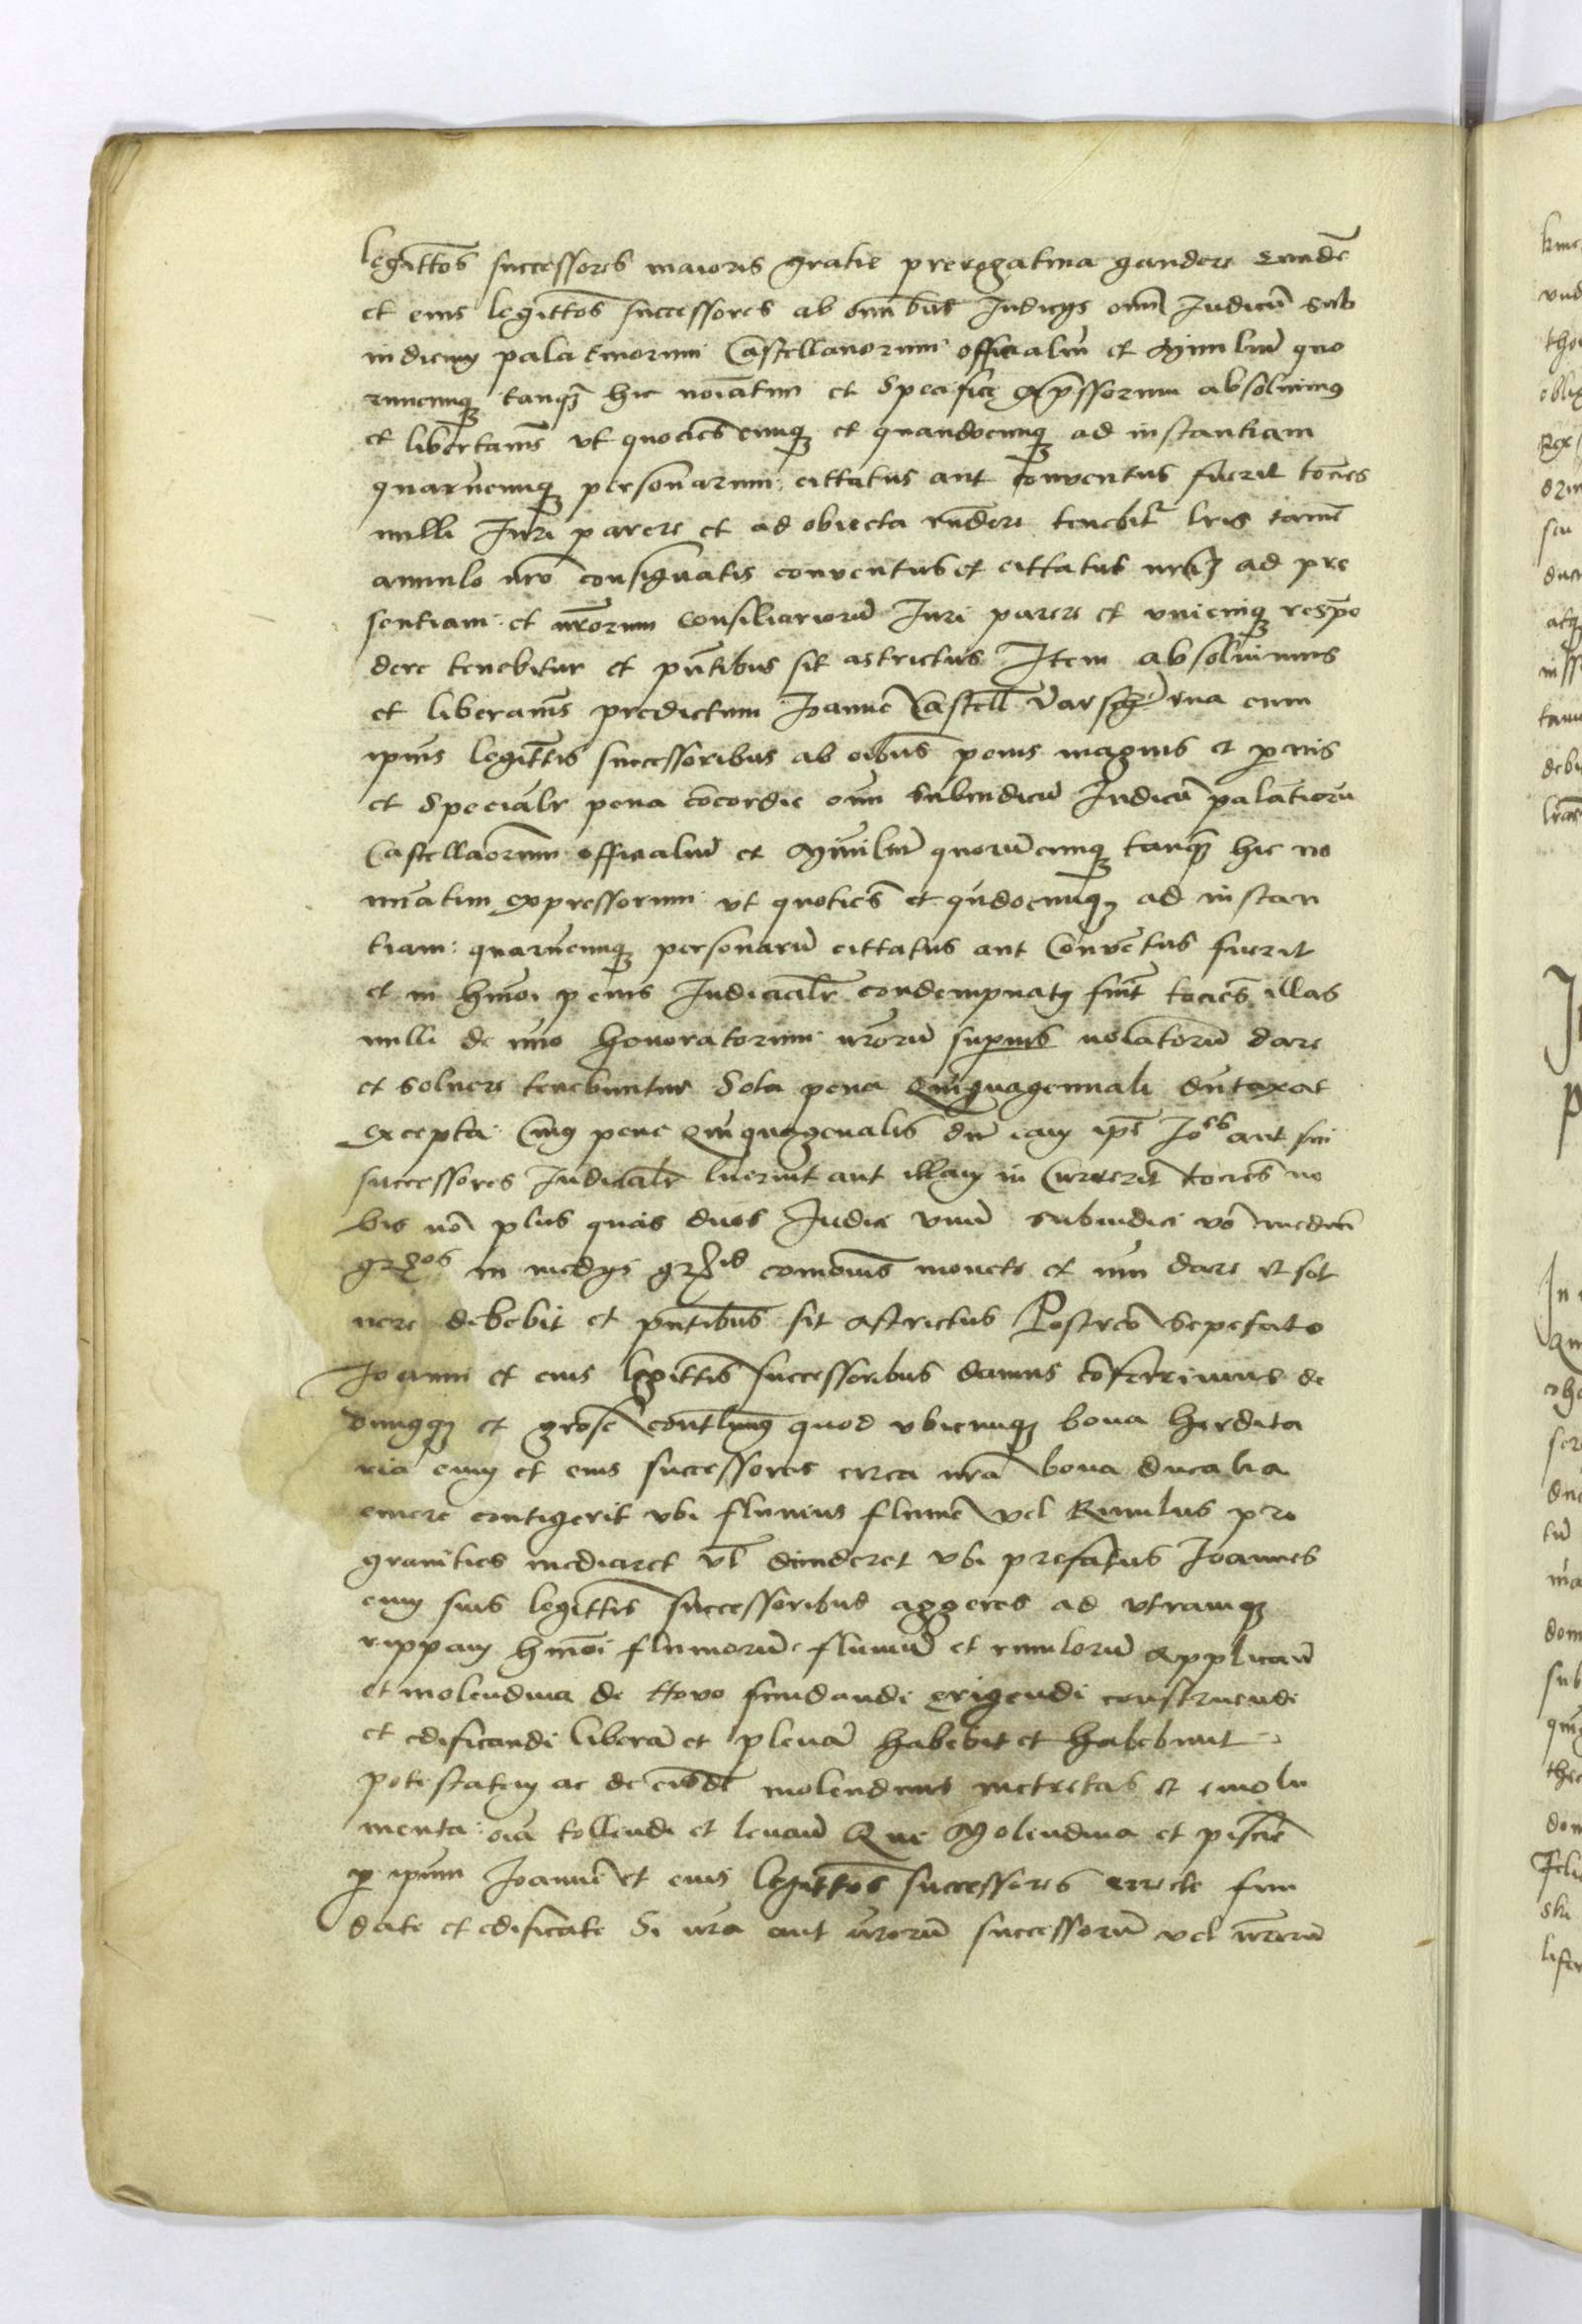 legittos successores maioris gratie prerogatiua gaudere eundē
et eius legittos successores ab omnibus Iudicys om̄i Iudicū Sub
iudicum palatinorum Castellanorum officialiū et Ministrū quo
rumcunq tanq̄ hic noīatim et Specifice exp̄ssorum absoluimus
et libertamus vt quociēscunq et quandocunq ad instantiam
quarūcunq personarum cittatus aut conventus fuerit tocies
nulli Iuri parere et ad obiecta rn̄dere tenebitr lris tamē
annulo nr̄o consignatis conventus et cittatus ad pre
sentiam et nr̄orum consiliariorū Iuri parere et vnicuiq respō
dere tenebitur et pn̄tibus sit astrictus Item absoluimus
et liberamus predictum Ioannē Castell̄ una cum
ipius legittis successoribus ab oibus penis magnis et paruis
et Specialr pena concordie om̄i Subiudicū Iudicū palatiorū
Castellaorum officialiū et Ministrū quorūcunq tanq̄ hic no
minatim expressorum vt quotiēs et qn̄docunq ad instan
tiam quarūcunq personarū cittatus aut Convētus fuerit
et in hm̄oi penis Iudicialr condempnatq fuīt tociēs illas
nulli de uno honoratorum nr̄orū supius nolatorū dare
et soluere tenebuntur Sola pena Quīquagennali dūtaxat
excepta Cuius pene Quīquagenalis dū eam ip̄e Ioēs aut sui
successores Iudicialr luerint aut illam in Currerīt tociēs no
bis nō plus quas duos Iudici vnū subiudici vō mediū
grꝭos in medys grꝭis comunis monete et nūi dare et sol
uere debebit et pn̄tibus sit astrictus Postremo Sepefato
Ioanni et eius legittīs successoribus damus cōferrimus de
dimusq et grose quod vbicunq bona herdita
ria eum et eius successores circa nrā bona ducalia
emere contigerit vbi fluuius flumē vel Riuulus pro
granities mediaret vl̄ diuideret vbi prefatus Ioannes
cum suis legittīs successoribus aggeres ad vtramq
rippam hm̄oi fluuiorū fluminū et riuulorū applicādi
et molendina de nouo fundandi erigendi construendi
et edificandi liberā et plenā habebit et habebunt
potestatem ac de eisdē molendinis metretas et emolu
menta oīa tollendi et leuandi Que Molendina et piscie
p ipum Ioannē et eius legittos successores errecte fun
date et edificate Si nr̄a aut nr̄orū successorū vel nr̄orū